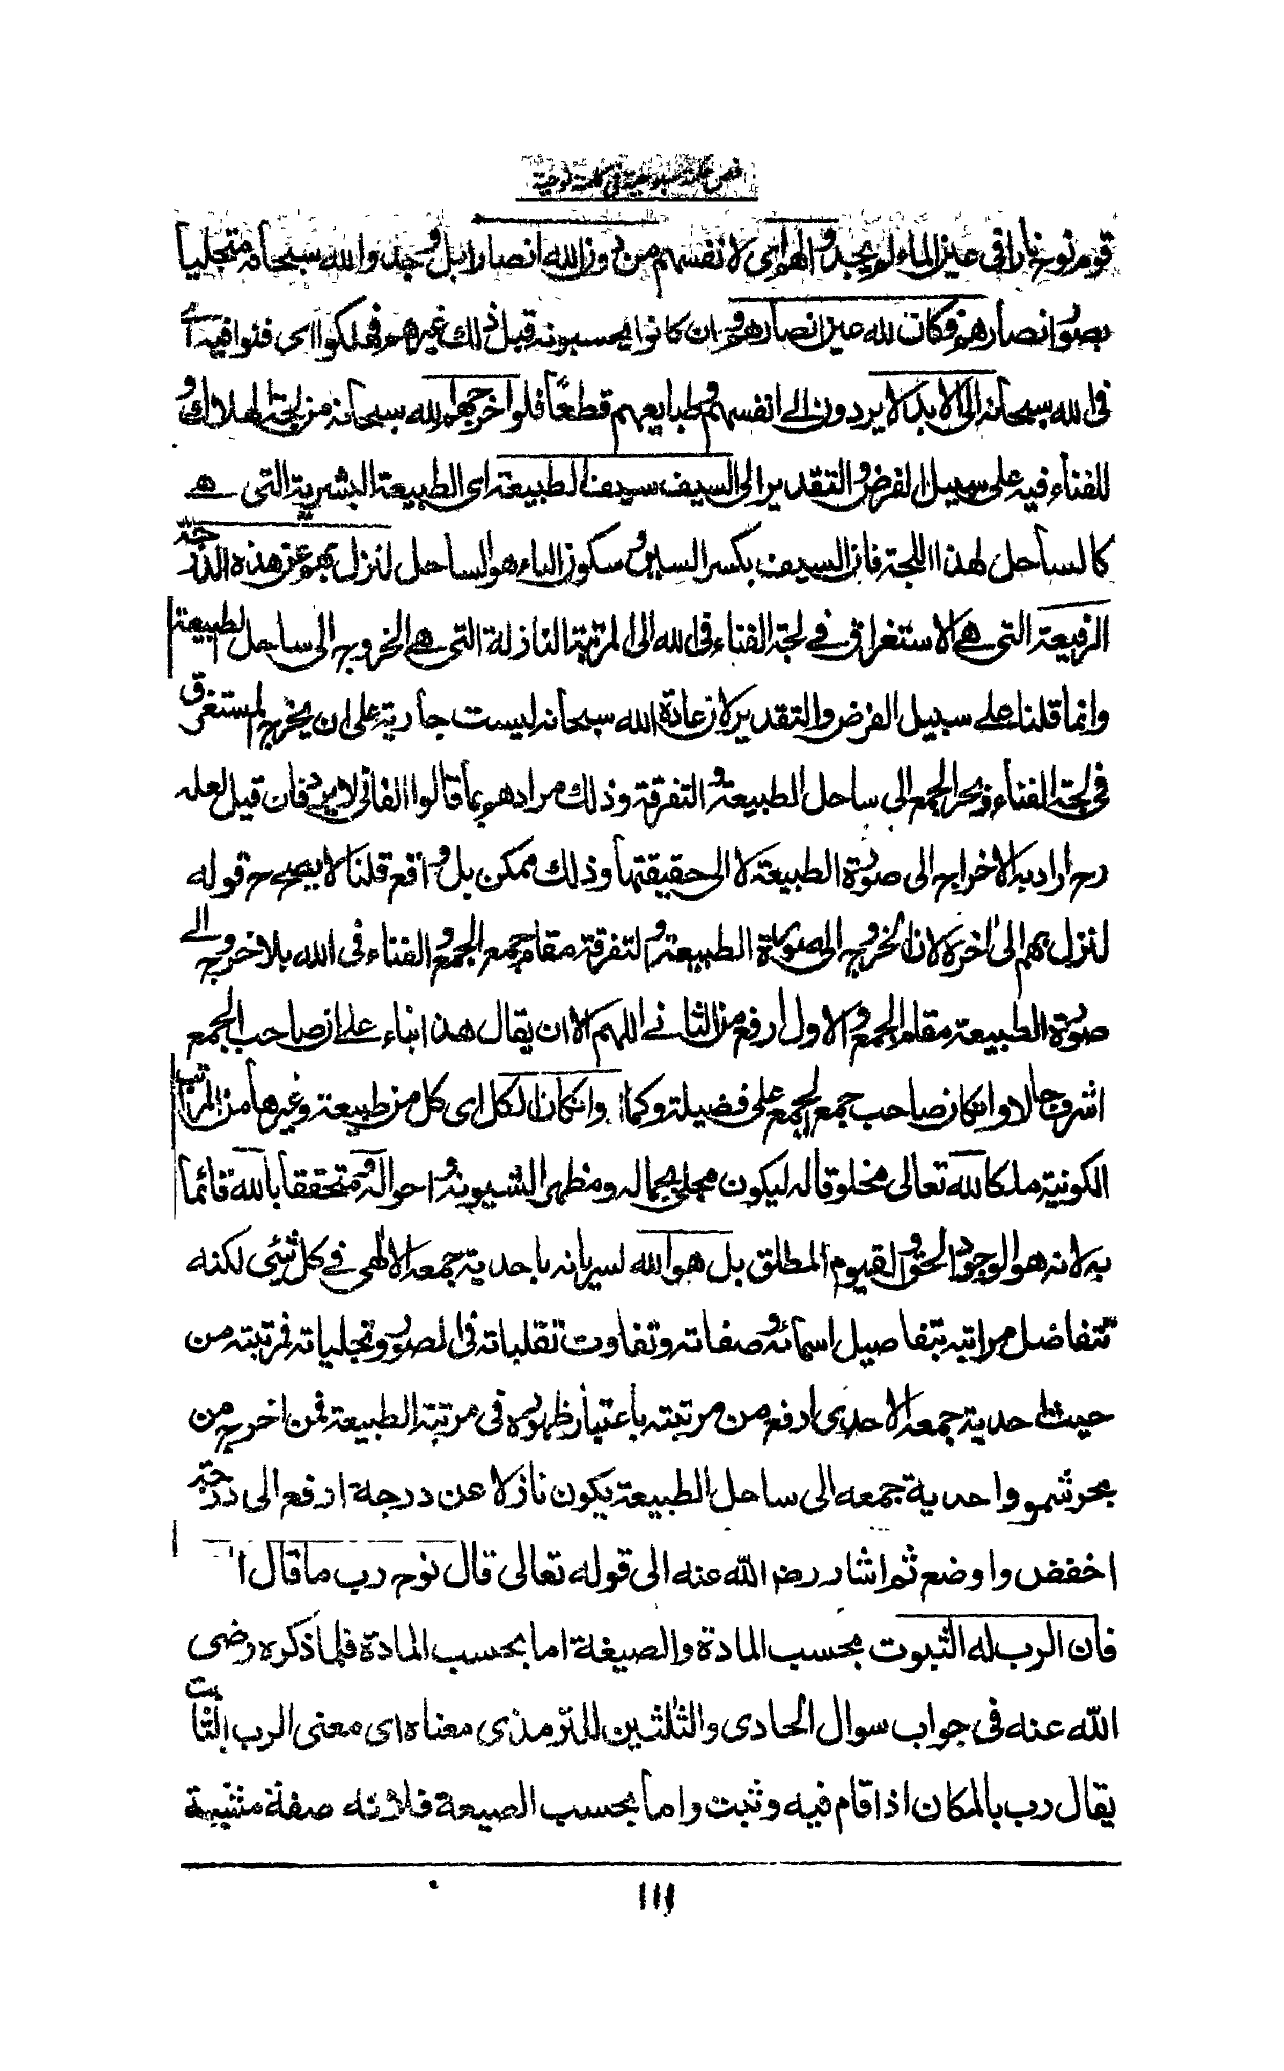 فص حكمة سبوحية في كلمة نوحية
قوم نوح نارا في عين الماء لم يجدوا لهم اى لانفسهم من دون الله انصارا بل وجدوا الله سبحانه متجليا
بصور انصارهم فكان الله عين انصارهم وان كانوا يحسبونه قبل ذلك غيرهم فهلكوا اى فنوا فيه اى
فى الله سبحانه الى الابد لا يردون الى انفسهم وطبايعهم قطعا فلو اخرجهم الله سبحانه من لجة الهلاك و
الفناء فيه على سبيل الفرض والتقدير الى السيف سيف الطبيعة اى الطبيعة البشرية التى هى
كالساحل لهذا اللجة فان السيف بكسر السين وسكون الياء هو الساحل لنزل بهم عن هذه الدرجة
الرفيعة التى هى الاستغراق فى لجة الفناء فى الله الى المرتبة النازلة التى هى الخروج الى ساحل الطبيعة
وانما قلنا على سبيل الفرض والتقدير لان عادة الله سبحانه ليست جارية على ان يخرج المستغرق
فى لجة الفناء وبحر الجمع الى ساحل الطبيعة والتفرقة وذلك مرادهم بما قالوا الفانى لا يرد فان قيل لعله
رح اراد به الاخراج الى صورة الطبيعة لا الى حقيقتها وذلك ممكن بل واقع قلنا لا يصح ح قوله
لنزل بهم الى اخره لان الخروج الى صورة الطبيعة والتفرقة مقام جمع الجمع والفناء فى الله بلا خروج الى
صورة الطبيعة مقام الجمع والاول ارفع من الثانى اللهم الا ان يقال هذا بناء على ان صاحب الجمع
اشرف حالا وان كان صاحب جمع الجمع على فضيلة وكمالا وان كان الكل اى كل من طبيعة وغيرها من المراتب
الكونية ملكا لله تعالى مخلوقا له ليكون مجلى لجماله ومظهرا لشيونه واحواله ومتحققا بالله قائما
به لانه هو الوجود الحق والقيوم المطلق بل هو الله لسريانه باحدية جمعه الالهى فى كل شئى لكنه
تتفاضل مراتبه بتفاصيل اسمائه وصفاته وتفاوت تقلباته فى الصور وتجلياته فمرتبته من
حيث احدية جمعه الاحدى ارفع من مرتبته باعتبار ظهوره فى مرتبة الطبيعة فمن اخرج من
بحر شمو واحدية جمعه الى ساحل الطبيعة يكون نازلا عن درجة ارفع الى درجة
اخفض واوضع ثم اشار رضى الله عنه الى قوله تعالى قال نوح رب ما قال ا
فان الرب له الثبوت بحسب المادة والصيغة اما بحسب المادة فلما ذكره رضى
الله عنه فى جواب سوال الحادى والثلثين للترمذى معناه اى معنى الرب الثابت
يقال رب بالمكان اذا اقام فيه وثبت واما بحسب الصيعة فلانه صفة مشبهة
١١١